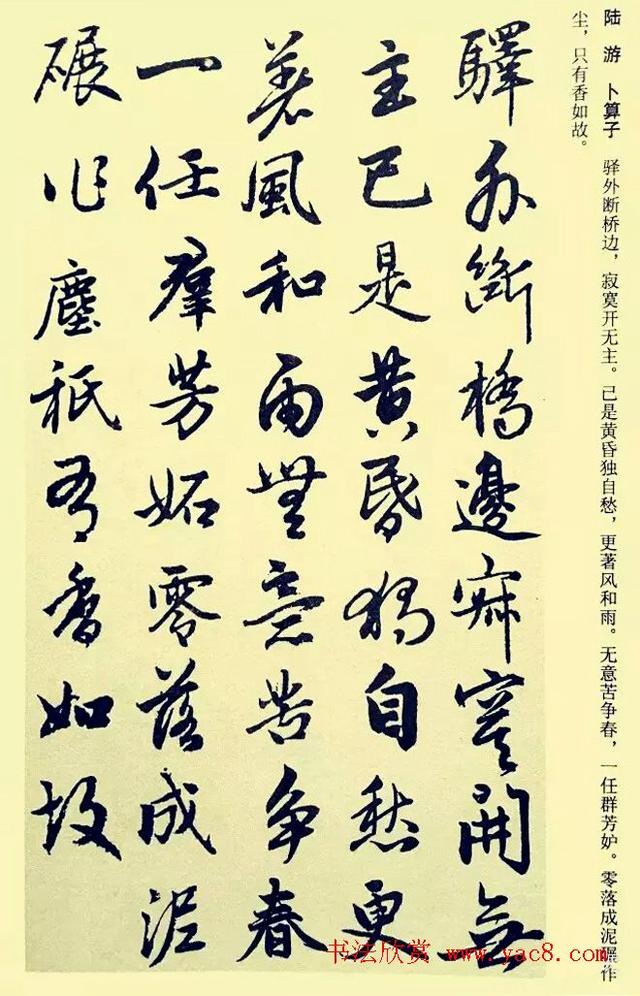 驛外斷橋邊寂寞開無
主已是黄昏獨自愁更
著風和雨無意苦争春
一任羣芳妬零落成泥
碾作塵祇有香如故
陆 游 卜算子 驿外断桥边，寂寞开无主。已是黄昏独自愁，更著风和雨。无意苦争春，一任群芳妒。零落成泥碾作
尘，只有香如故。
书法欣赏 www.yac8.com